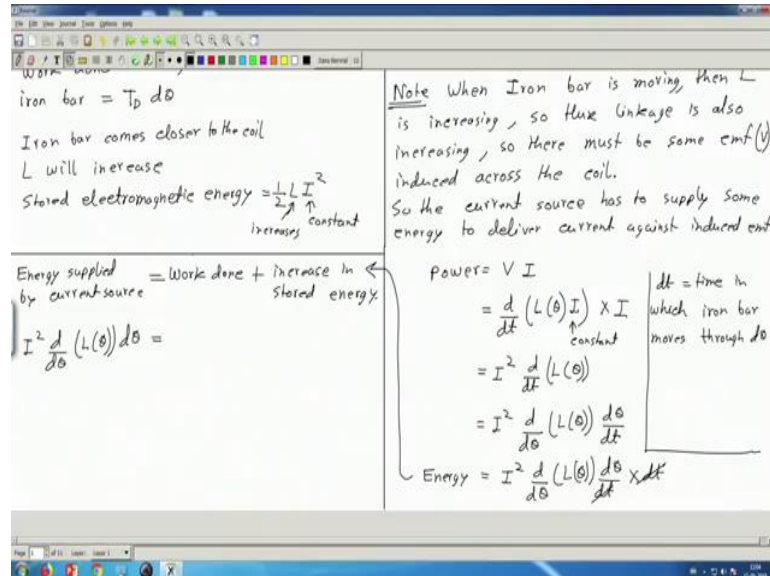 File Edit View Journal Tools Options Help
iron bar = T_D dθ
Iron bar comes closer to the coil
L will increase
Stored electromagnetic energy = 1/2 L I²
increases
constant
Energy supplied by current source = Work done + increase in stored energy
I² d/dθ (L(θ)) dθ =
Note When Iron bar is moving, then L
is increasing, so flux linkage is also
increasing, so there must be some emf (V)
induced across the coil.
So the current source has to supply some
energy to deliver current against induced emf
Power = V I
= d/dt (L(θ) I) × I
constant
= I² d/dt (L(θ))
= I² d/dθ (L(θ)) dθ/dt
Energy = I² d/dθ (L(θ)) dθ/dt × dt
dt = time in
which iron bar
moves through dθ
Page 1 of 11 Layer: Layer 1